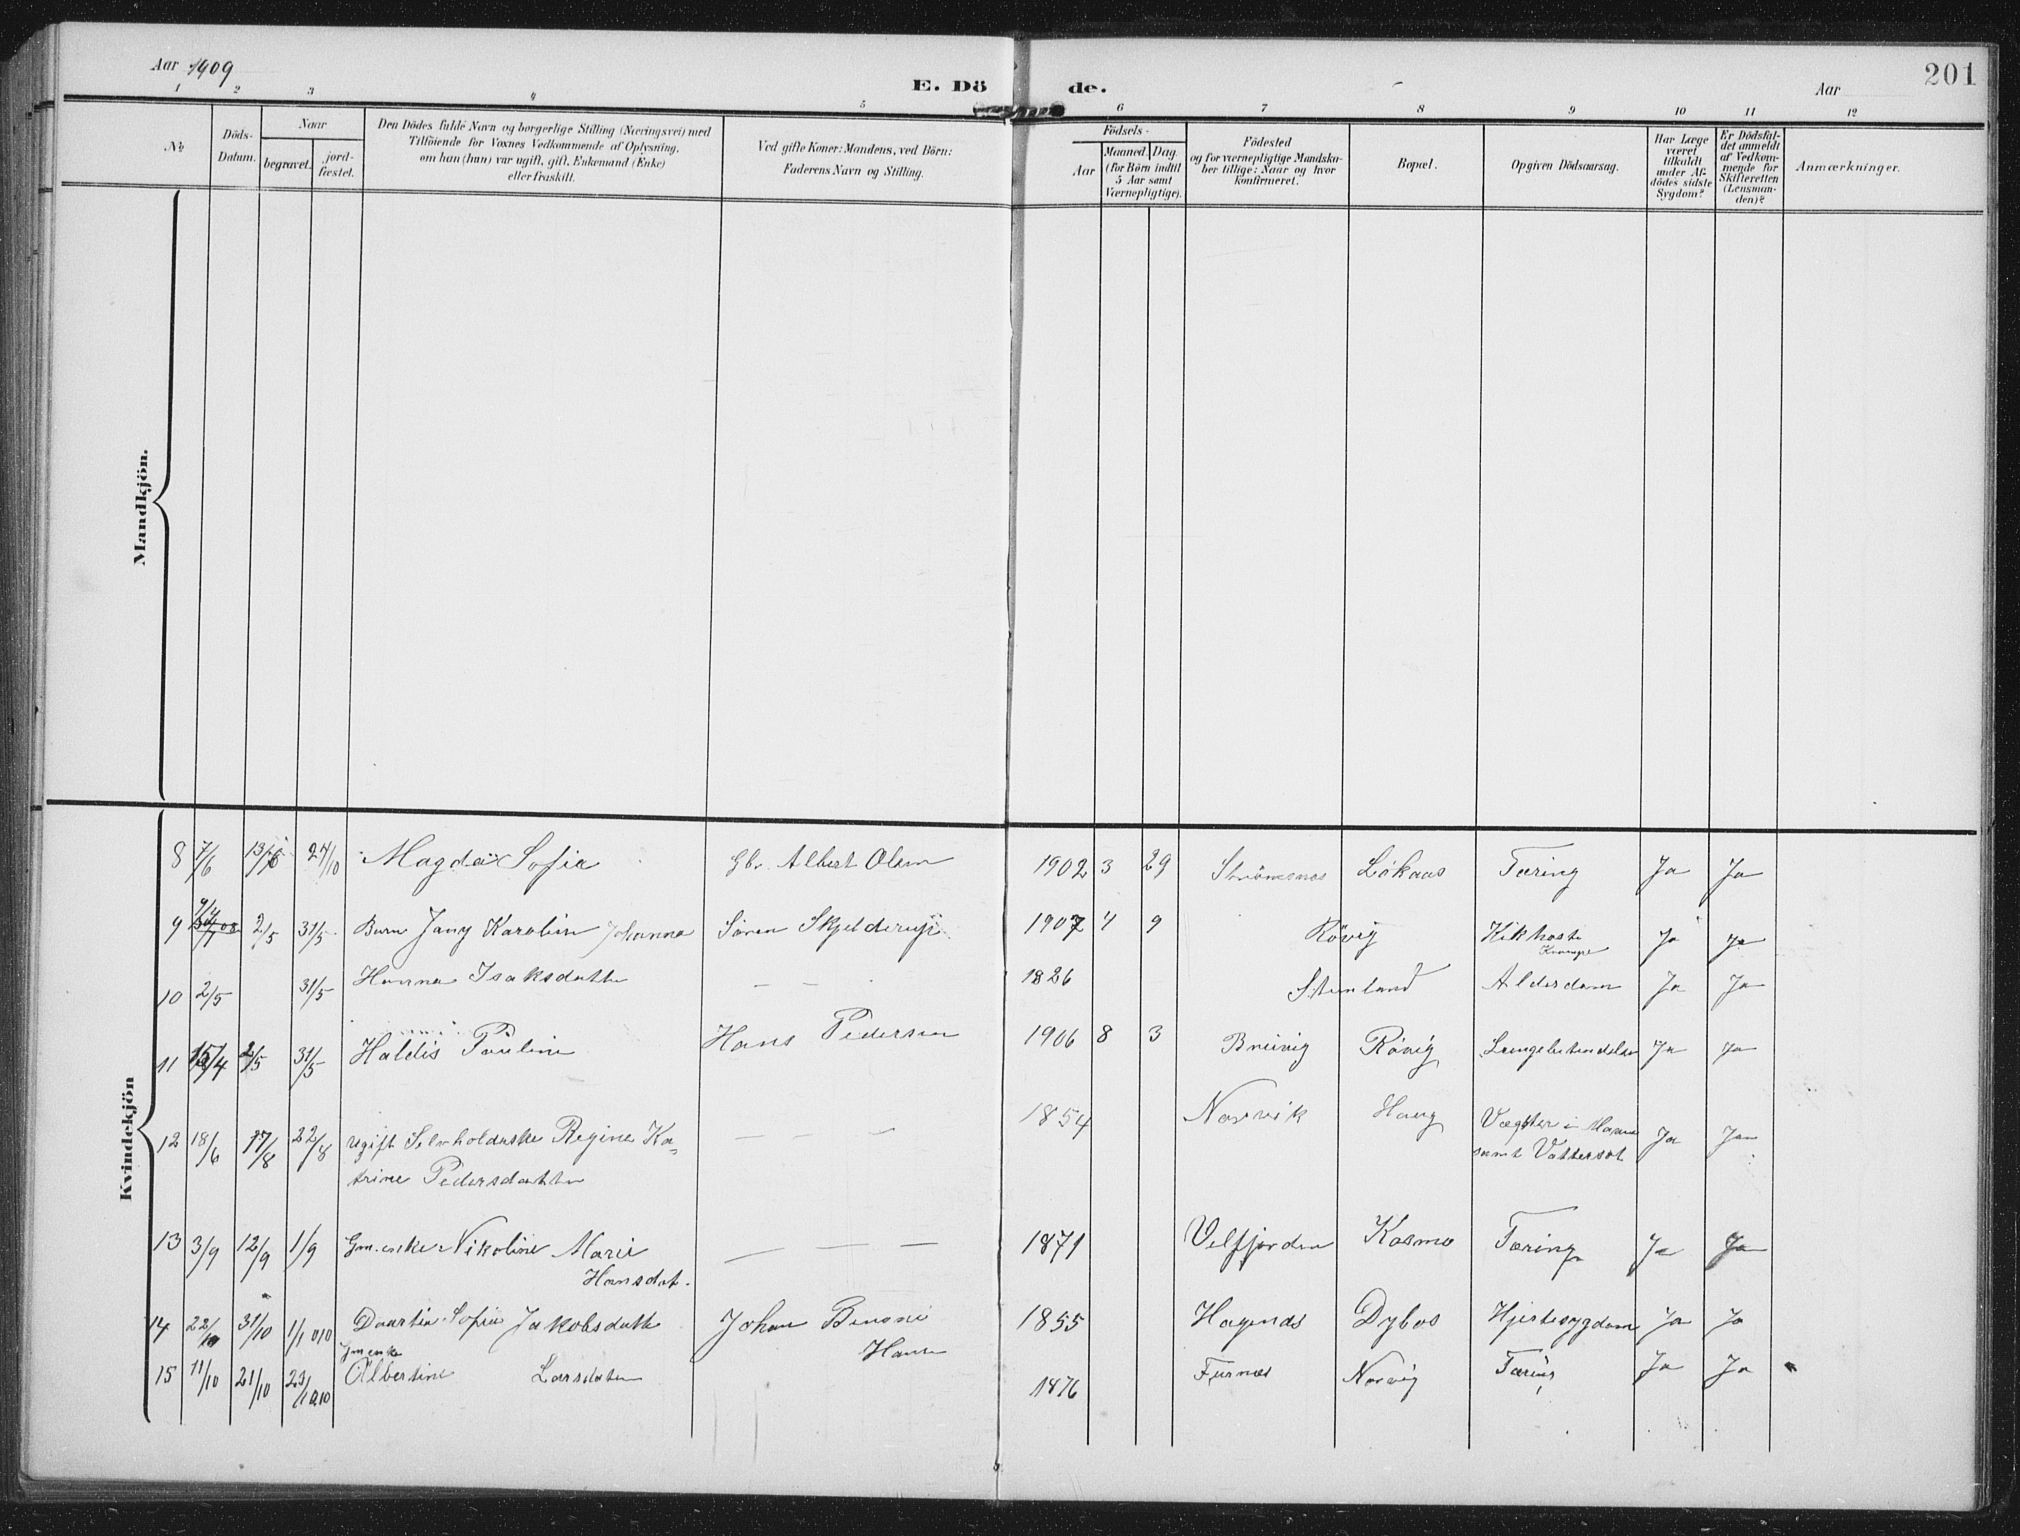 Aar 1909
E. Dö de.
Aar
201
1 2 3 4 5 6 7 8 9 10 11 12
No
Döds-Datum.
Naar
begravet.
jord-fæstet.
Den Dödes fulde Navn og borgerlige Stilling (Næringsvei) med
Tilföiende for Voxnes Vedkommende af Oplysning,
om han (hun) var ugift, gift, Enkemand (Enke)
eller fraskilt.
Ved gifte Koner: Mandens, ved Börn:
Faderens Navn og Stilling.
Födsels-
Aar
Maaned. Dag.
(for Börn indtil
5 Aar samt
Værnepligtige).
Födested
og for værnepligtige Mandska-
ber tillige: Naar og hvor
konfirmeret.
Bopæl.
Opgiven Dödsaarsag.
Har Læge
været
tilkaldt
under Af-
dödes sidste
Sygdom?
Er Dödsfal-
det anmeldt
af Vedkom-
mende for
Skifteretten
(Lensman-
den)?
Anmærkninger.
Mandkjön.
Kvindekjön
8 7/6 13/6 24/10 Magda Sofie Gbr. Albert Olsen 1902 3 29 Strömsnes Lökaas Tæring Ja Ja
9 2/5 31/5 Barn Jany Karolin Johanna Sören Skjelderup 1907 4 9 Rövig Kikhoste Ja Ja
10 2/5 31/5 Hanna Isaksdatter — — 1826 Stenland Alderdom Ja Ja
11 15/4 2/5 31/5 Haldis Pauline Hans Pedersen 1906 8 3 Breivig Rövig Lungebetendelse Ja Ja
12 18/6 17/8 22/8 ugift Selvholderske Regine Ka- — — — 1854 Narvik Haug Vægster i Maven Ja Ja
trine Pedersdatter samt Vattersot
13 3/9 12/9 1/9 Gm. enke Nikoline Marie — — — 1871 Velfjorden Kosmo Tæring Ja Ja
Hansdat.
14 22/10 31/10 1/1 010 Daartea Sofie Jakobsdatter Johan Hansen 1855 Hagenes Dybos Hjertesygdom Ja Ja
Gmenke
15 11/10 21/10 Albertine Larsdatter 1876 Furnes Norvig Tæring Ja Ja